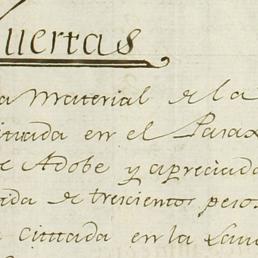 uertas
a material de la
ituada en el Parax
e Adobe y apreciada
ida de trescientos pesos
cituada en la